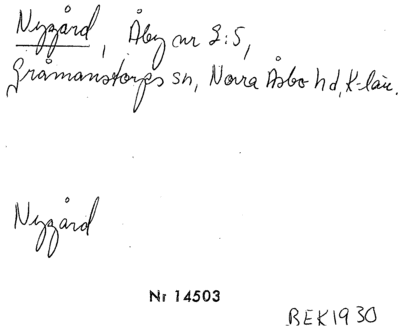 Nygård, Åby nr 2:5,
Gråmanstorps sn, Norra Åsbo hd, K-län.
Nygård
Nr 14503
BEK1930